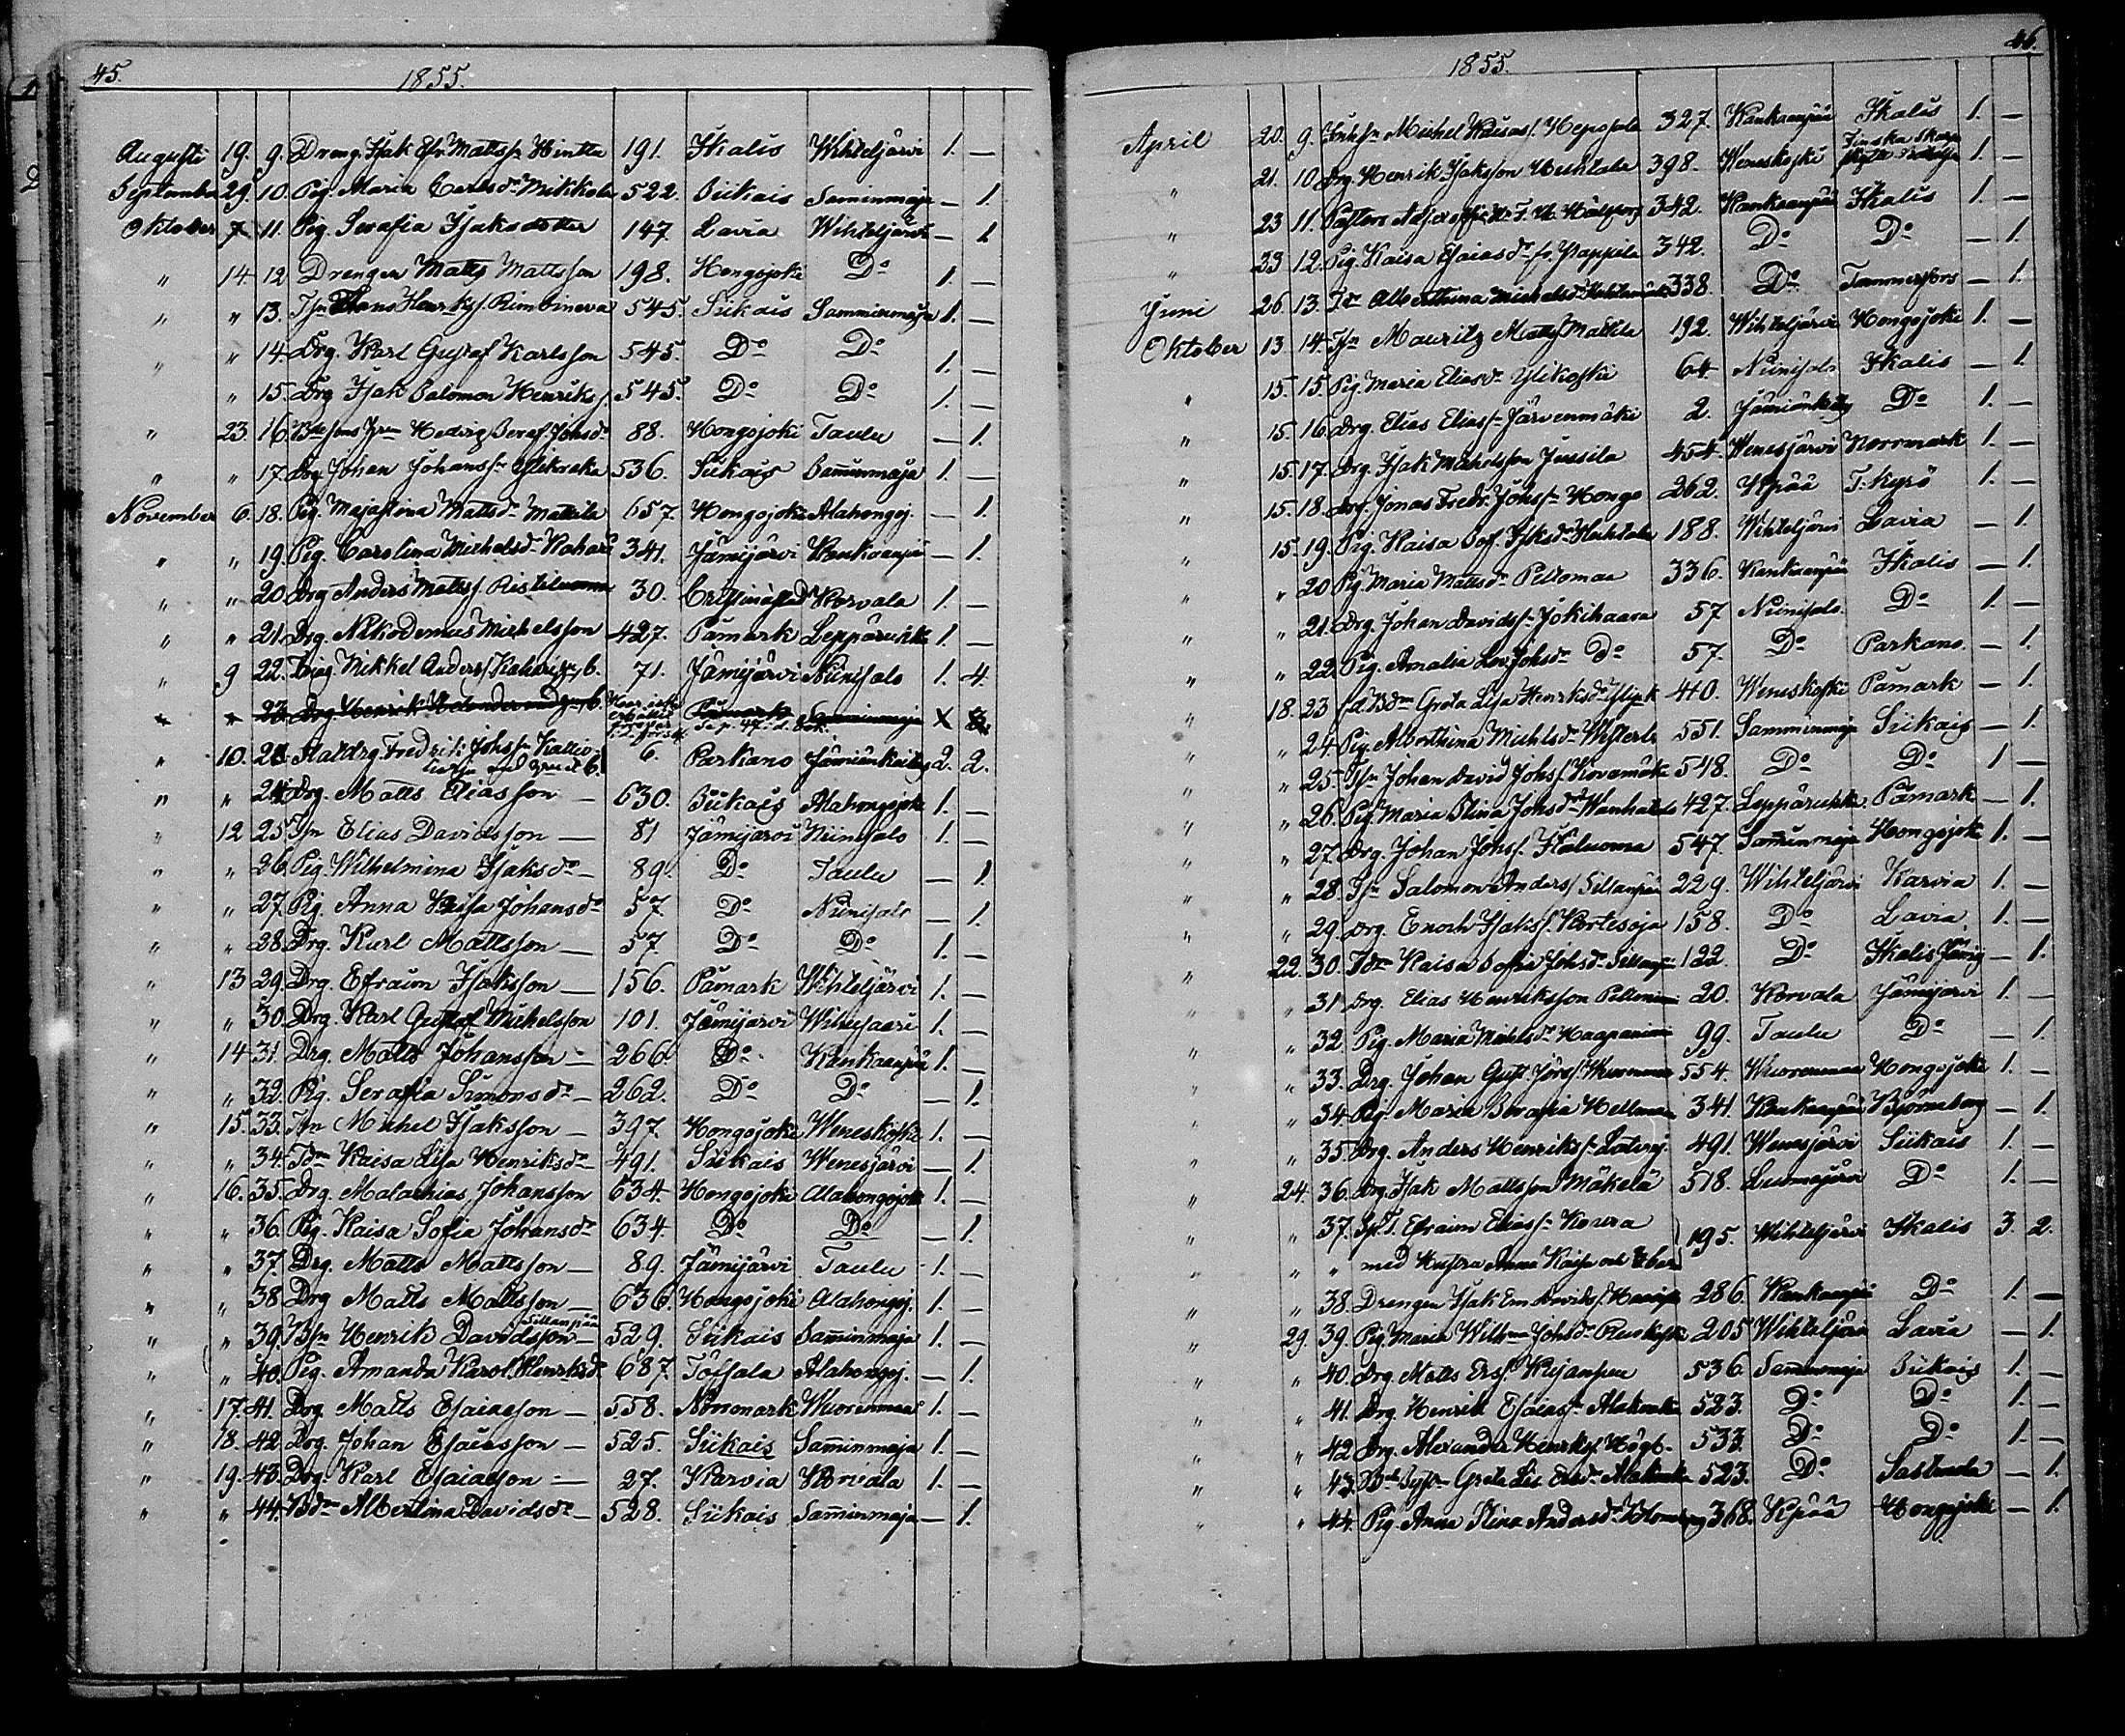 45.
1855.
Augusti 19. 9. Dreng. Isak Efr. Mattss: Hintta 191. Ikalis Wihteljärvi 1. —
September 29. 10. Pig. Maria Carlsd: Mikkola 522. Siikais Saminmaja — 1.
Oktober 7 11. Pig. Serafia Isaksdotter 147. Lavia Wihteljärvi — 1
" 14 12 Drengen Matts Mattsson 198. Hongojoki Do 1. —
" " 13. Hans Henrikss. 545. Siikais Samminmaja 1. —
" " 14 Drg. Karl Gustaf Karlsson 545. Do Do 1. —
" " 15. Drg Isak Salomon Henrikss. 545. Do Do 1. —
" 23. 16. Hedvig Seraf. Johsd: 88. Hongojoki Taulu — 1.
" " 17. Drg Johan Johanss: 536. Siikais Saminmaja 1. —
November 6. 18. Pig. Majastina Mattsd: Mattila 657. Hongojoki Alahongoj. — 1.
" " 19. Pig. Carolina Michelsd: 341. Jämijärvi Kankaanpää — 1.
" " 20. Drg Anders Mattss. Ristiluoma 30. Cristinæstad Korvala 1. —
" " 21. Drg. Nikodemus Michelsson 427. Påmark Leppäruhka 1. —
" 9 22. Mikkel Anderss. 6. 71. Jämijärvi Niinisalo 1. 4.
" " 23. Drg. Henrik 6. Påmark Saminmaja X
" 10. 23. Staldrg. Fredrik Johss: Kallio- 6. Parkano Jämiänkeidas 2. 2.
" " 24. Drg. Matts Eliasson — 630. Siikais Alahongojoki 1. —
" 12 25 Elias Davidsson — 81 Jämijärvi Niinisalo 1. —
" " 26. Pig. Wilhelmina Isaksd: — 89. Do Taulu — 1.
" " 27. Pig. Anna Kaisa Johansd: 57. Do Niinisalo — 1.
" " 28. Drg. Karl Mattsson — 57. Do Do 1. —
" 13 29. Drg. Efraim Isaksson — 156. Påmark Wihteljärvi 1. —
" " 30. Drg. Karl Gustaf Mikelsson 101. Jämijärvi Wihusaari 1. —
" 14 31. Drg. Matts Johansson — 266. Do Kankaanpää 1. —
" " 32. Pig. Serafia Simonsd: — 262. Do Do — 1.
" 15. 33. Michel Isaksson — 397. Hongojoki Weneskoski 1. —
" " 34. Kaisa Lisa Henriksd: 491. Siikais Wenesjärvi — 1.
" 16. 35. Drg. Malachias Johansson 634. Hongojoki Alahongojoki 1. —
" " 36. Pig. Kaisa Sofia Johansd: 634. Do Do — 1.
" " 37. Drg. Matts Mattsson — 89. Jämijärvi Taulu 1. —
" " 38. Drg Matts Mattsson — 636. Hongojoki Alahongoj. 1. —
" " 39. Henrik Davidsson Sillanpää — 529. Siikais Saminmaja 1. —
" " 40. Pig. Amanda Karol. Henriksd: 687. Töfsala Alahongoj. — 1.
" 17. 41. Drg. Matts Esaiasson — 558. Norrmark Wuorenmaa 1. —
" 18. 42. Drg. Johan Esaiasson — 525. Siikais Saminmaja 1. —
" 19. 43. Drg. Karl Esaiasson — 27. Karvia Korvala 1. —
" " 44. Albertina Davidsd: — 528. Siikais Saminmaja — 1.
46.
1855.
April 20. 9. Michel 327. Kankaanpää Ikalis 1. —
" 21. 10. Drg. Henrik Isaksson Huhtala 398. Weneskoski Finska 1. —
" 23 11. Pastors 342. Kankaanpää Ikalis 1. —
" 23 12. Pig. Kaisa Esaiasd: fr. Pappila 342. Do Do — 1.
Juni 26. 13. Albertina Michelsd: 338. Do Tammerfors — 1.
Oktober 13 14. Mauritz Mattss. Mattila 192. Wihteljärvi Hongojoki 1. —
" 15. 15. Pig. Maria Eliasd: Ylikoski 64. Niinisalo Ikalis — 1.
" 15. 16. Drg. Elias Eliass: Järvenmäki 2. Jämiänkeidas Do 1. —
" 15. 17. Drg. Isak Michelsson Jussila 454. Wenesjärvi Norrmark 1. —
" 15. 18. Drg. Jonas Fredr. Johss: Hongo 262. Kyrö 1. —
" 15. 19. Pig. Kaisa Sof. Isksd: Huhtala 188. Wihteljärvi Lavia — 1.
" " 20 Pig Maria Mattsd: Peltomaa 336. Kankaanpää Ikalis — 1.
" " 21. Drg. Johan Davidss: Jokihaara 57 Niinisalo Do 1. —
" " 22. Pig. Amalia Lov. Johsd: Do 57. Do Parkano — 1.
" 18. 23 Greta Lisa Henriksd: 410. Weneskoski Påmark — 1.
" " 24. Pig. Alberthina Michlsd: 551. Samminmaja Siikais — 1.
" " 25. Johan David Johss. 548. Do Do 1 —
" " 26. Pig. Maria Stina Johsd: Wanhatalo 427. Leppäruhka Påmark — 1.
" " 27. Drg. Johan Johss. 547. Saminmaja Hongojoki 1. —
" " 28. Salomon Anderss. Sillanpää 229. Wihteljärvi Karvia 1. —
" " 29. Drg. Enoch Isakss. Kortesoja 158. Do Lavia 1. —
" 22. 30. Kaisa Sofia Johsd: 122. Do Ikalis — 1.
" " 31. Drg. Elias Henriksson Peltoniemi 20. Korvala Jämijärvi 1. —
" " 32. Pig. Maria Michlsd: Haapaniemi 99. Taulu Do — 1.
" " 33. Drg. Johan Gust. 554. Wuorenmaa Hongojoki 1. —
" " 34. Pig. Maria Serafia Hellman 341. Kankaanpää Björneborg — 1.
" " 35. Drg. Anders Henrikss. 491. Wenesjärvi Siikais 1. —
" 24. 36. Drg. Isak Mattsson Mäkelä 518. Do 1. —
" " 37. Efraim Eliass: Koura
" " " med Hustru Anna Kaisa och 195. Wihteljärvi Ikalis 3. 2.
" " 38. Drengen Isak Em. Davidss. 286. Kankaanpää Do 1. —
" 29. 39. Pig. Maria Johsd: 205 Wihteljärvi Lavia — 1.
" " 40. Drg. Matts 536. Saminmaja Siikais 1. —
" " 41. Drg. Henrik Esaiass: 523. Do Do 1. —
" " 42. Drg. Alexander Henrikss. 533. Do Do 1. —
" " 43. Greta 523. Do Sastmola — 1.
" " 44. Pig. Anna Stina Andersd: Blomberg 368. Hongojoki — 1.